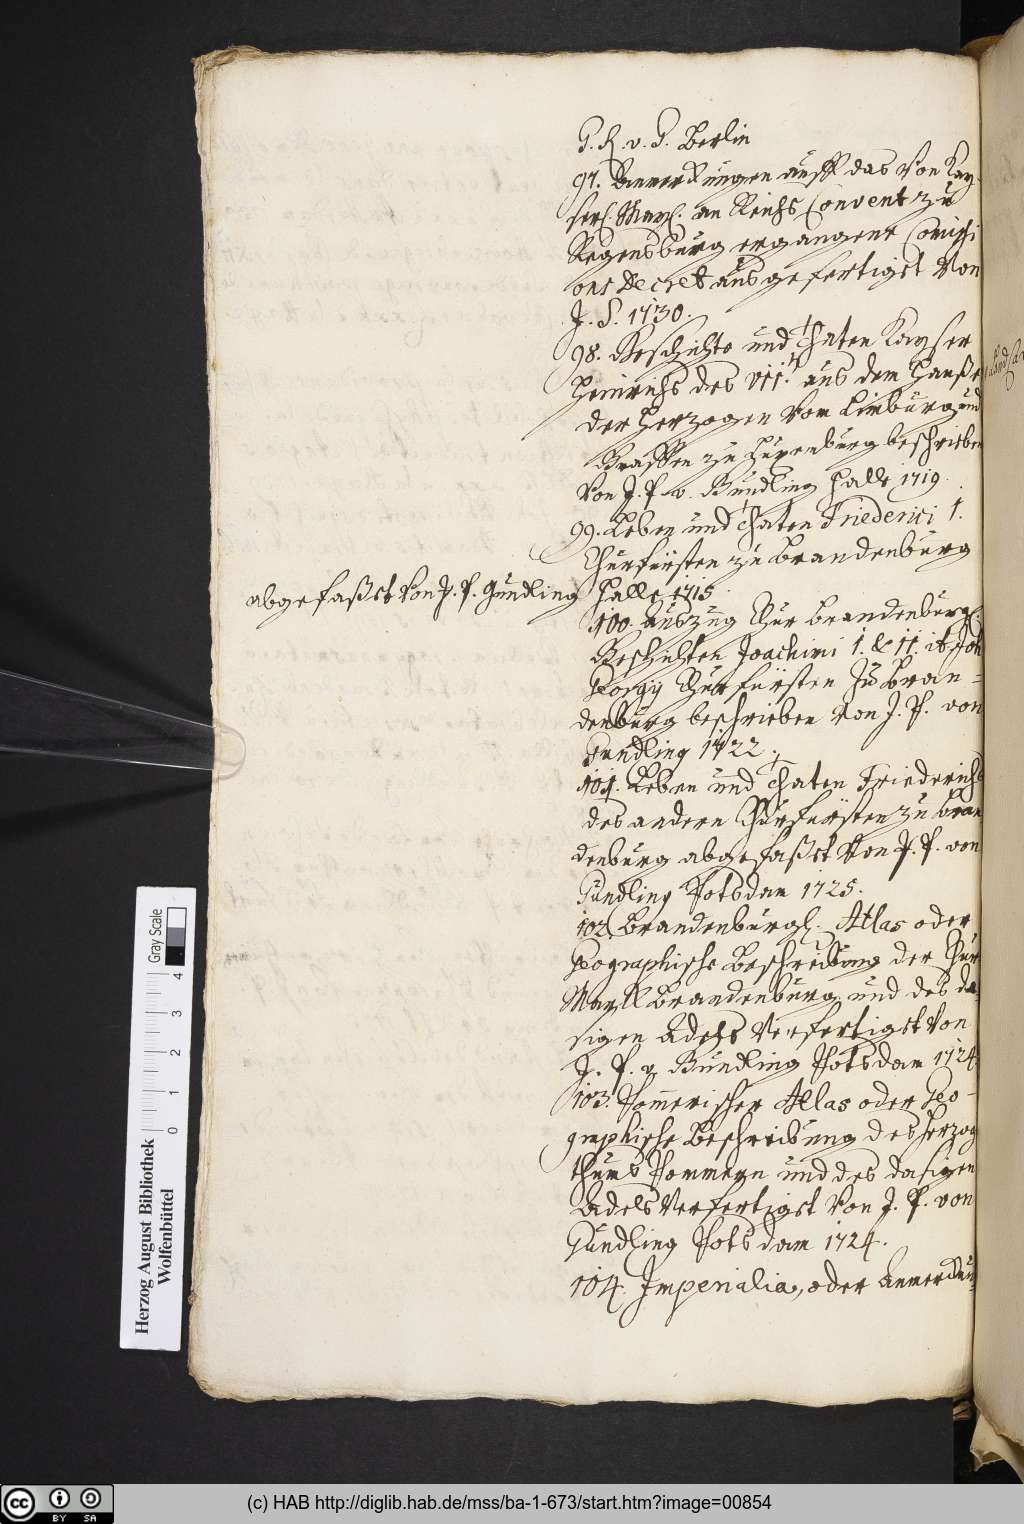 G. R. v. G. Berlin
97. Anmerckungen auff das Von Kay-
serl. May. an Reichs Convent zu
Regensburg ergangene Comissi
ons Decret ausgefertiget Von
J. S. 1730.
98. Geschichte und Thaten Kayser
Heinrichs des VII. aus dem Hauße
der Herzogen Von Limburg und
Graffen zu Luxenburg beschrieben
Von J. P. v. Gundling Halle 1719.
99. Leben und Thaten Friederici I.
Churfürsten zu Brandenburg
abgefaßet Von J. P. Gundling Halle 1715
100. Auszug Chur Brandenburgl.
Geschichten Joachimi I. & II. it. Joh
Georgij Churfürsten Zu Bran-
denburg beschrieben Von J. P. von
Gundling 1722.
101. Leben und Thaten Friederichs
des andern Churfürsten zu Bran
denburg abgefaßet Von J. P. von
Gundling Potsdam 1725.
102. Brandenburgl. Atlas oder
Geographische Beschreibung der Chur
Marck Brandenburg und des da-
sigen Adels Verfertiget Von
J. P. v. Gundling Potsdam 1724
103. Pom̅erischer Atlas oder Geo-
graphische Beschreibung des Herzog
thums Pommern und des dasigen
Adels Verfertiget Von J. P. von
Gundling Potsdam 1724.
104. Imperialia, oder Anmerckun-
Gray Scale
0 1 2 3 4
Herzog August Bibliothek
Wolfenbüttel
cc BY SA
(c) HAB http://diglib.hab.de/mss/ba-1-673/start.htm?image=00854